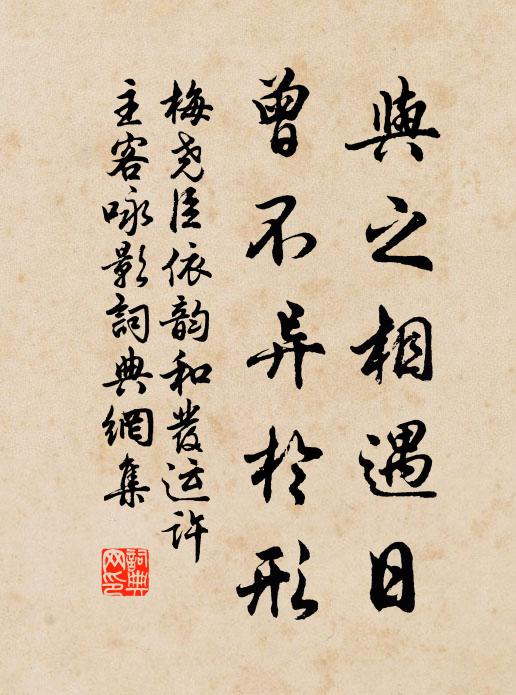 與之相遇日
曾不异於形
梅尧臣依韵和發运許
主客咏影詞典網集
詞典网印